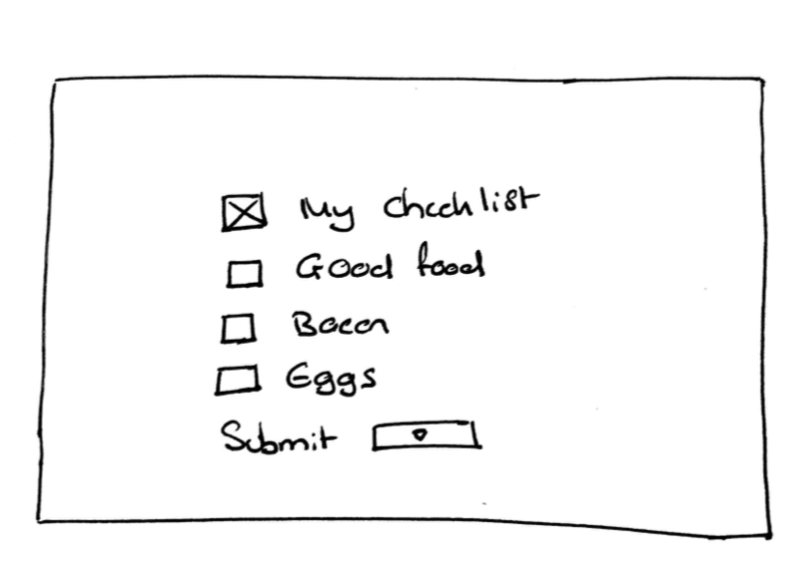 My checklist
Good food
Bacon
Eggs
Submit